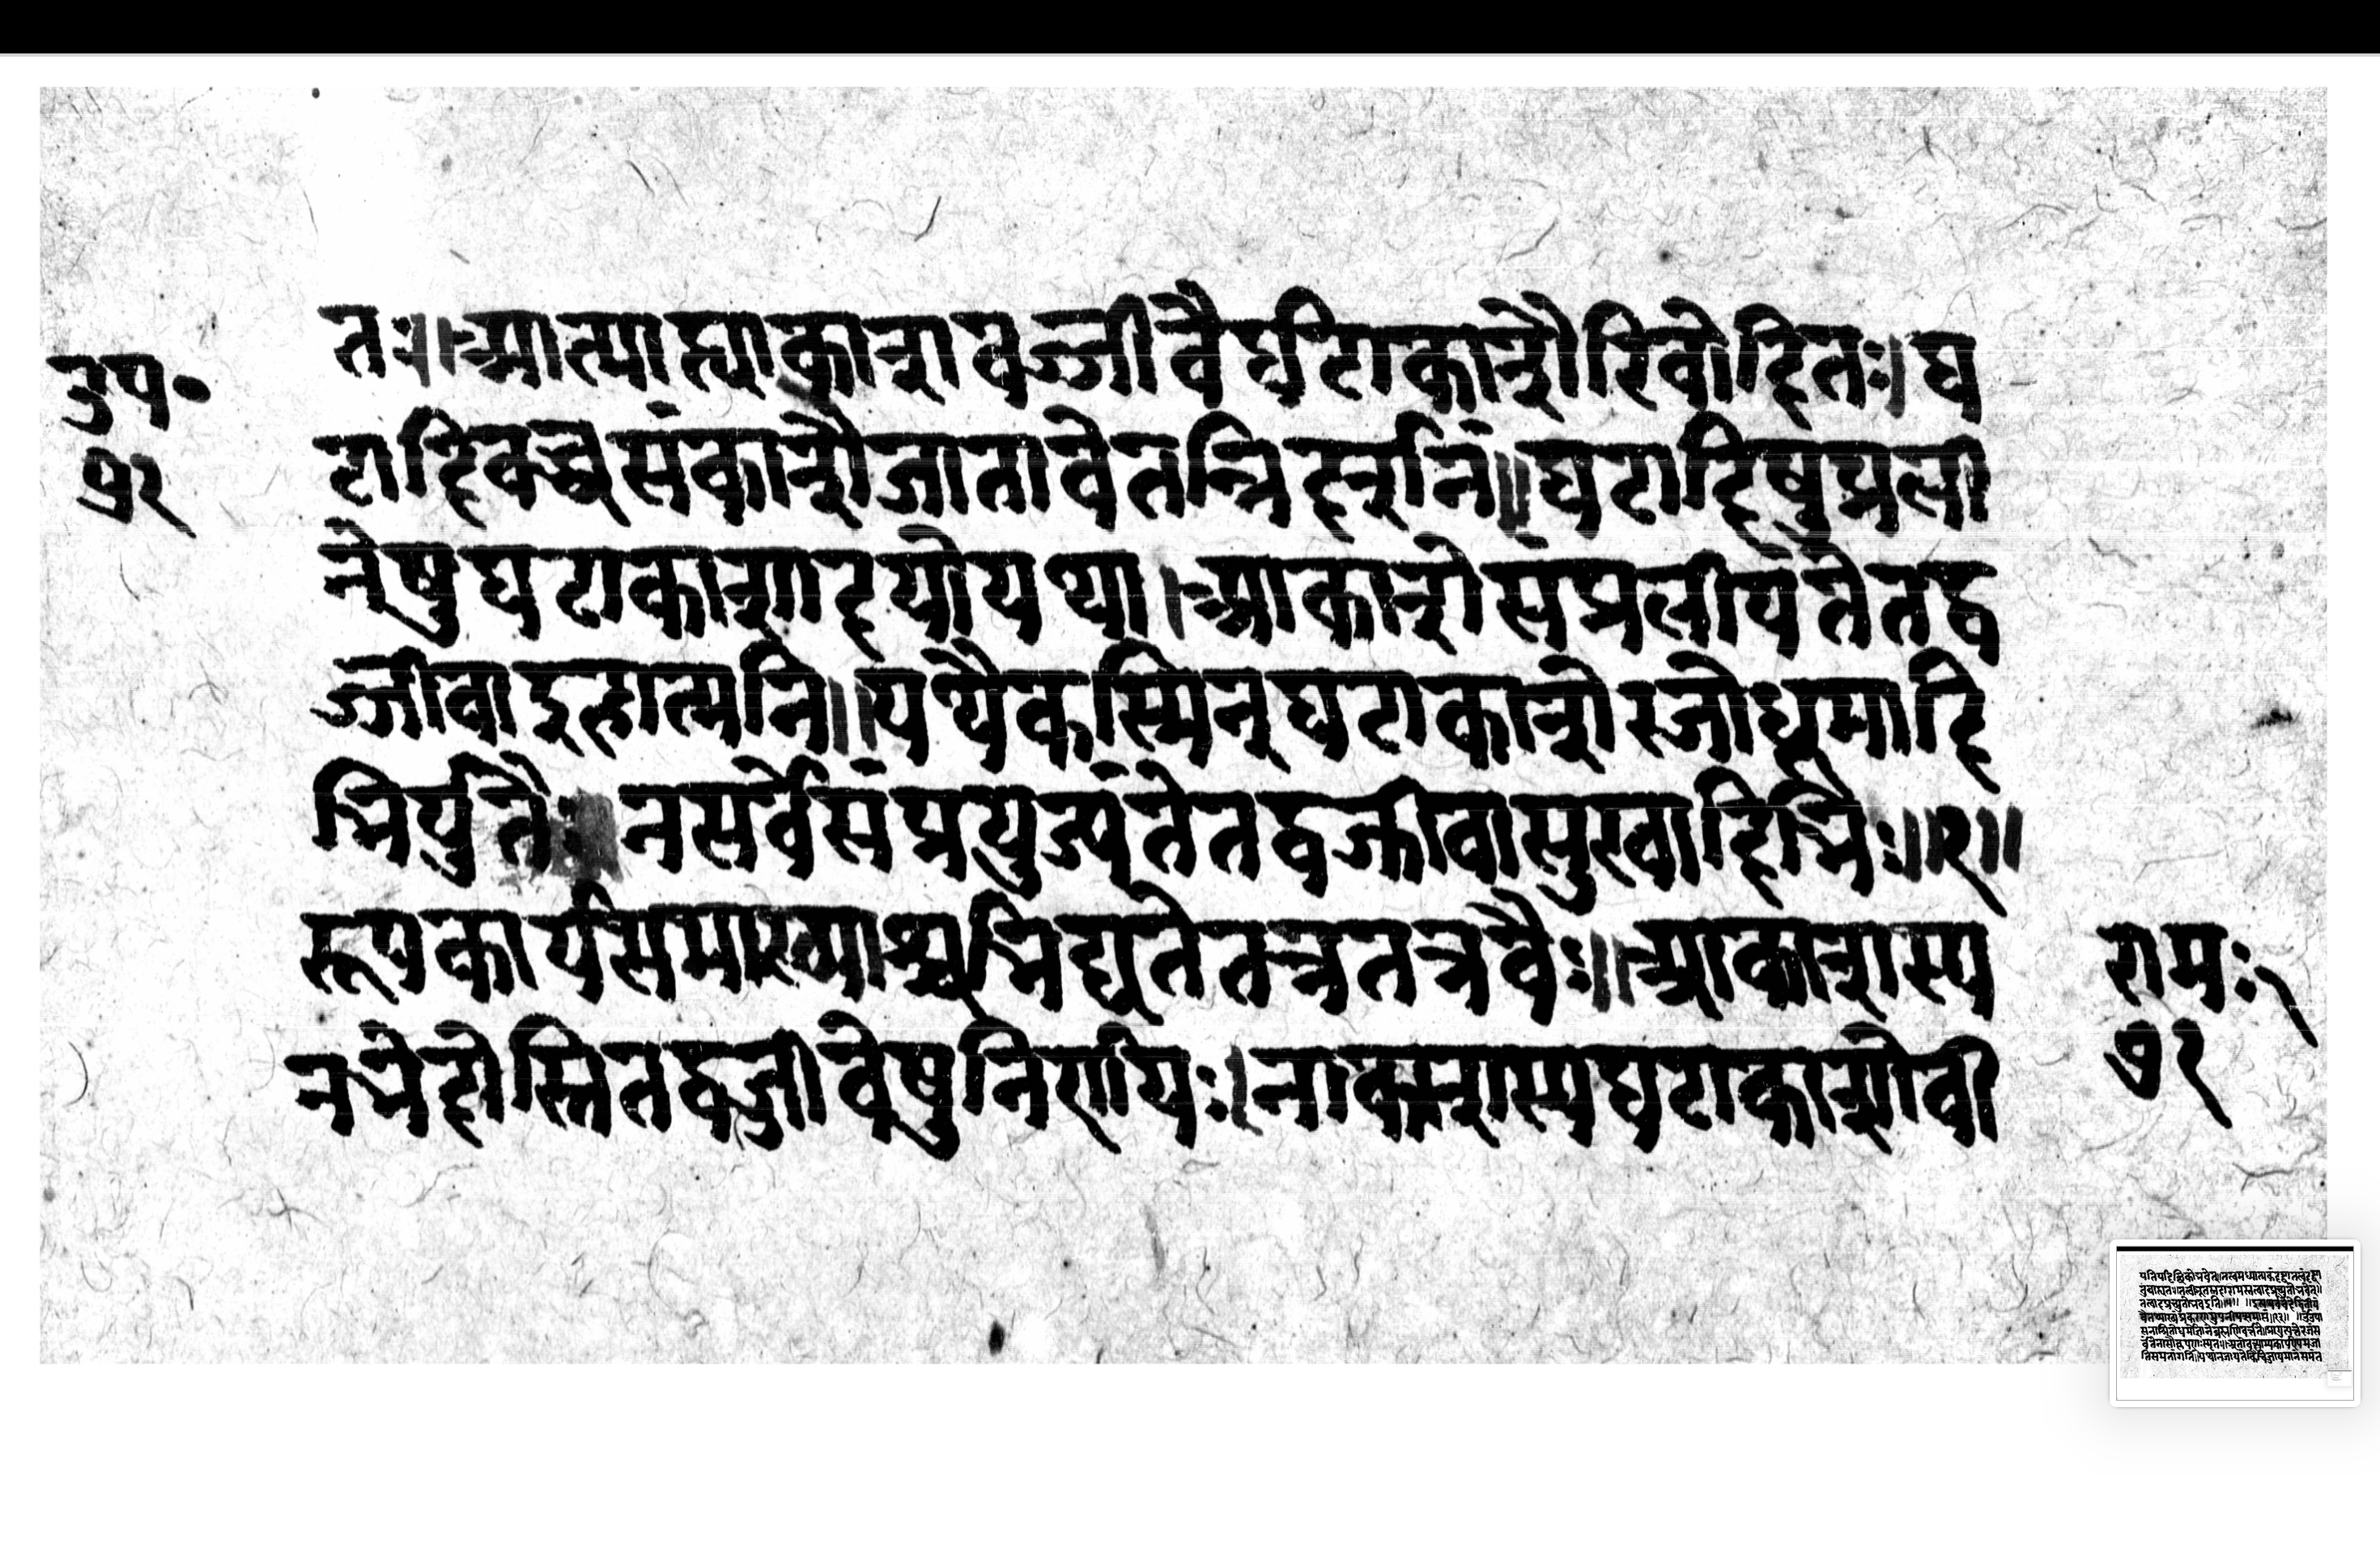 तः॥आत्माह्याकाशवज्जीवैर्घटाकाशैरिवोदितः।घ
उप॰
टादिवच्चसंकाशैजातावेतन्निदर्शनं॥घटादिषुप्रली
७२
नेषुघटाकाशादयोयथा।आकाशेसंप्रलीयंतेतद्व
ज्जीवाइहात्मनि॥यथैकस्मिन्घटाकाशेरजोधूमादि
भिर्युतेः नसर्वेसंप्रयुज्यंतेतद्वज्जीवासुखादिभिः॥२॥
रूपकार्यसमाख्याश्चभिद्यतेतत्रतत्रवैः॥आकाशस्य
रामः२
नभेदोस्तितद्वज्जीवेषुनिर्णयः।नाकाशस्यघटाकाशोवी
७२